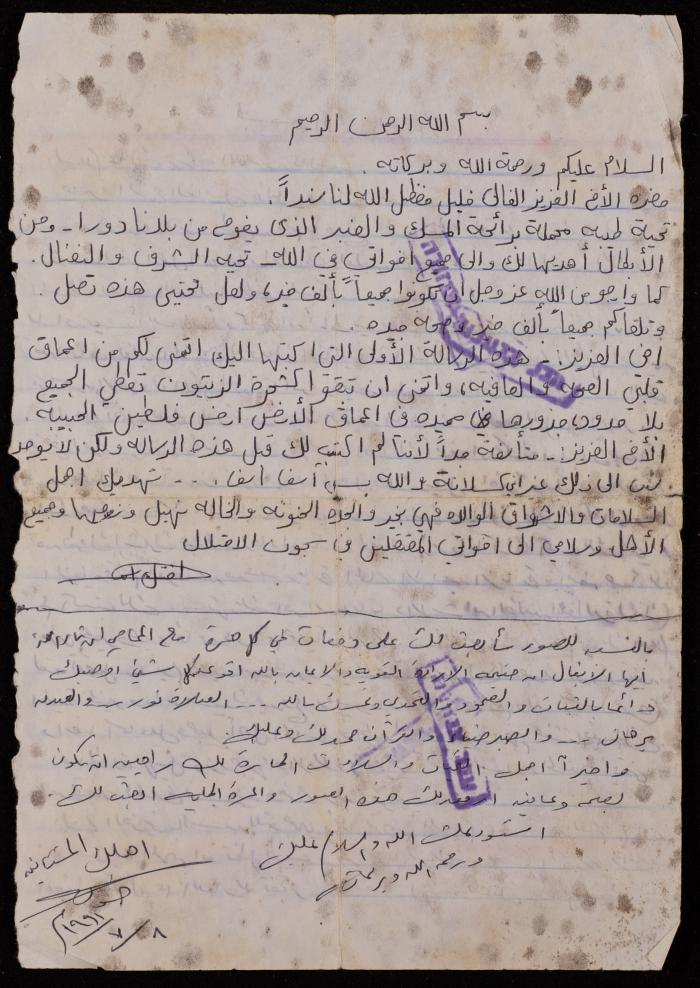 بسم الله الرحمن الرحيم
السلام عليكم ورحمة الله وبركاته .
حضرة الأخ العزيز الغالي خليل حفظك الله لنا سنداً .
تحية طيبه محملة برائحة المسك والعنبر الذي يفوح من بلدنا دورا - ومن
الأبطال أهديها لك والى جميع اخواتي في الله - تحيه الشرف والنضال .
كما وارجو من الله عز وجل ان تكونوا جميعاً بألف خير، ولعل تحيتي هذه تصل .
وتلقاكم جميعاً بألف خير وصحه جيده .
اخي العزيز :- هذه الرسالة الأولى التي اكتبها اليك اتمنى لكم من اعماق
قلبي الصحه والعافيه ، واتمنى ان تبقوا كشجرة الزيتون تعطي الجميع
بلا حدود، جذورها في اعماق الأرض ارض فلسطين الحبيبة .
الأخ العزيز :- متأسفة جداً لأننا لم اكتب لك قبل هذه الرساله ولكن لا يوجد
الى ذلك غير اني كسلانة والله بس آسفا اسفا . . . تهديك اهل
السلامات والاشواق الوالده فهي بخير والجده الحنونه والخاله نهيل وزوجها وجميع
الأهل وسلامي الى اخواتي المعتقلين في سجون الاحتلال
اختك
بالنسبه للصور سأبعث لك على دفعات في كل مرة مع المحامي ان شاء الله
أيها الابطال ان الارادة القويه والايمان بالله اقوى من كل شيء اوصيك
دائما بالثبات والصمود والتحدي بالله - - - الصلاة نور - والصدقه
برهان - - والصبر ضياء والقرآن حجه لك وعليك .
واخيراً اجمل التحيات والسلامات الحارة لك راجين ان تكون
بصحه وعافيه هذه الصور والمرة الجايه ابعث لك .
استودعك الله والسلام عليك
ورحمة الله وبركاته
اهلك المشتاقين
٨/٧/١٩٩٢